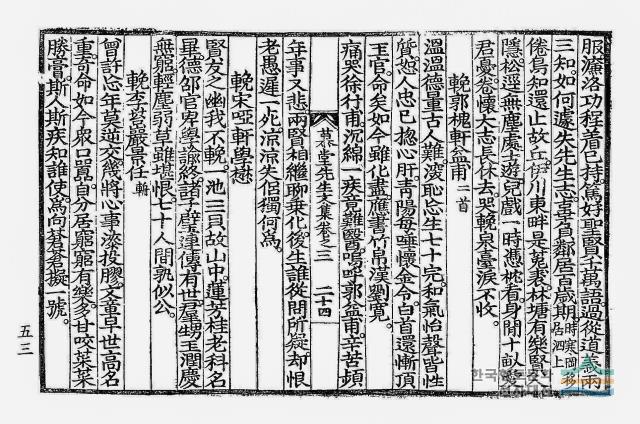 服濂洛功程着已持篤好聖賢千萬語過從道義兩
三知如何遽失先生志辜負鄰居百歲期時寒岡移居泗上
倦鳥知還止故丘伊川東畔是菟裘林塘有樂賢
隱松逕無塵處士遊兒戲一時憑枕看身閒十畝
君憂卷懷大志長休去哭輓泉臺淚不收
輓郭槐軒益甫二首
溫溫德量古人難淡耻忘生七十完和氣怡聲皆性
質恕人忠已揔心肝靑陽每唾懷金令白首還慚頂
玉官命矣如今雖化盡應書竹帛漢劉寬
痛哭徐行甫沉綿一疾竟難醫嗚呼郭益甫辛苦頻
慕堂先生文集卷之三 二十四
年事又悲兩賢相繼聊乗化後生誰從問所疑却恨
老愚遲一死凉凉失侶獨何爲
輓宋啞軒學懋
賢友之幽我不輓一池三貝故山中蓮芳桂老科名
畢德卲官卑學論終諸子聯璧連傳有世君甥玉潤慶
無窮輕塵弱草雖堪恨七十人間孰似公
輓李茗嚴景任
曾許忘年莫逆交幾將心事漆投膠文章早世高名
重奇命如今衆口嚣自分居窮窮有樂多甘咬菜菜
勝膏斯人斯疾知誰使爲向蒼蒼擬一號
五三